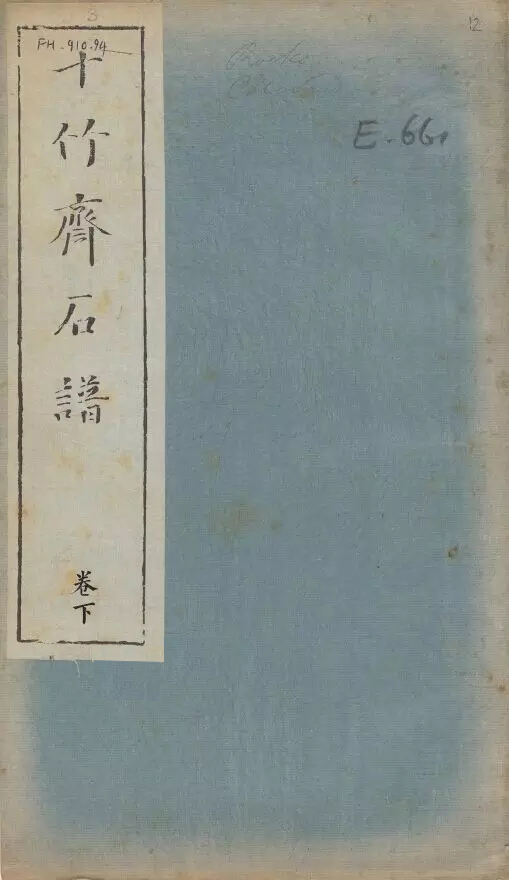 3
12
FH-910-94
十竹齊石譜
卷下
E.661